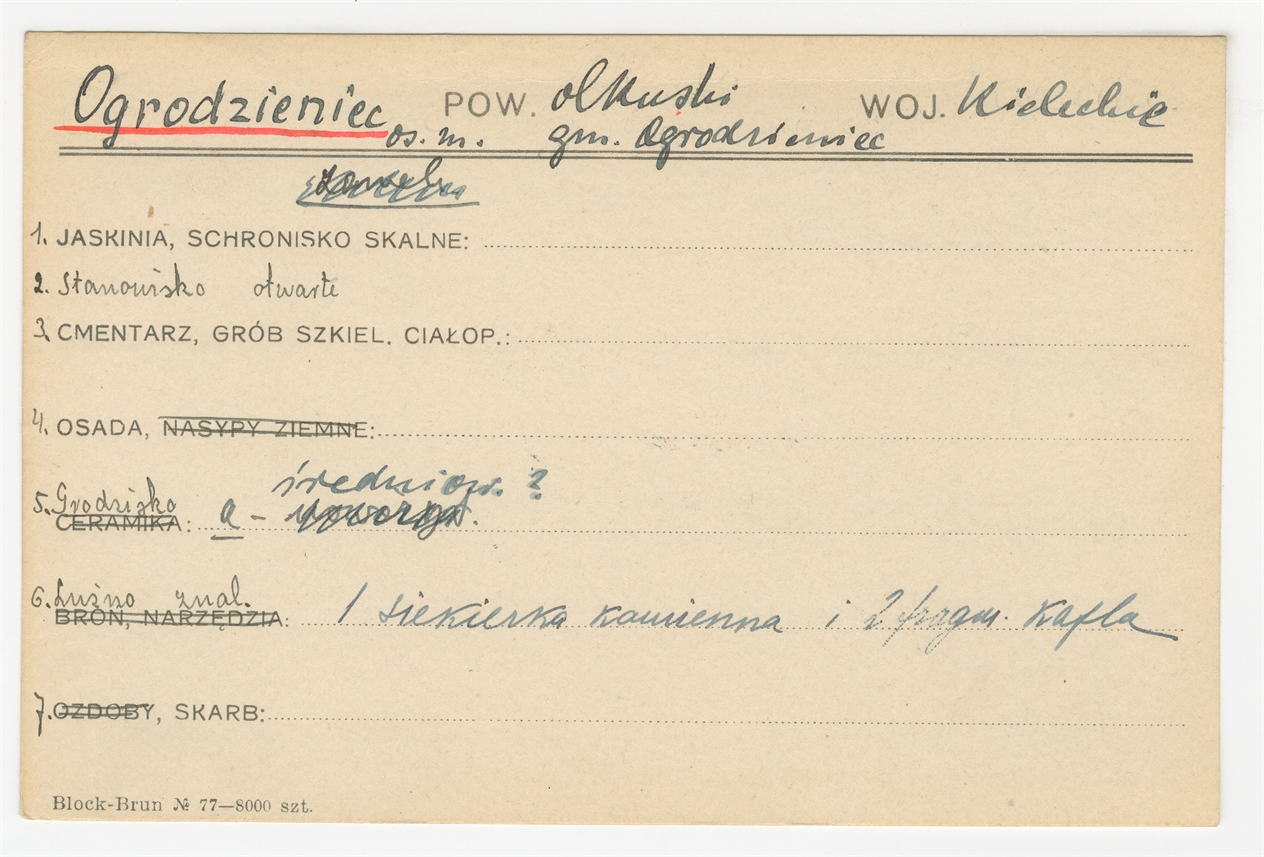 Ogrodzieniec POW. olkuski WOJ. Kieleckie
os. m. gm. Ogrodzieniec
1. JASKINIA, SCHRONISKO SKALNE:
2. Stanowisko otwarte
3. CMENTARZ, GRÓB SZKIEL. CIAŁOP.:
4. OSADA, NASYPY ZIEMNE:
średniow. ?
5. Grodzisko
CERAMIKA: a -
6. Luźno znal.
BROŃ, NARZĘDZIA: 1 siekierka kamienna i 2 fragm. kafla
7. OZDOBY, SKARB:
Block-Brun № 77—8000 szt.